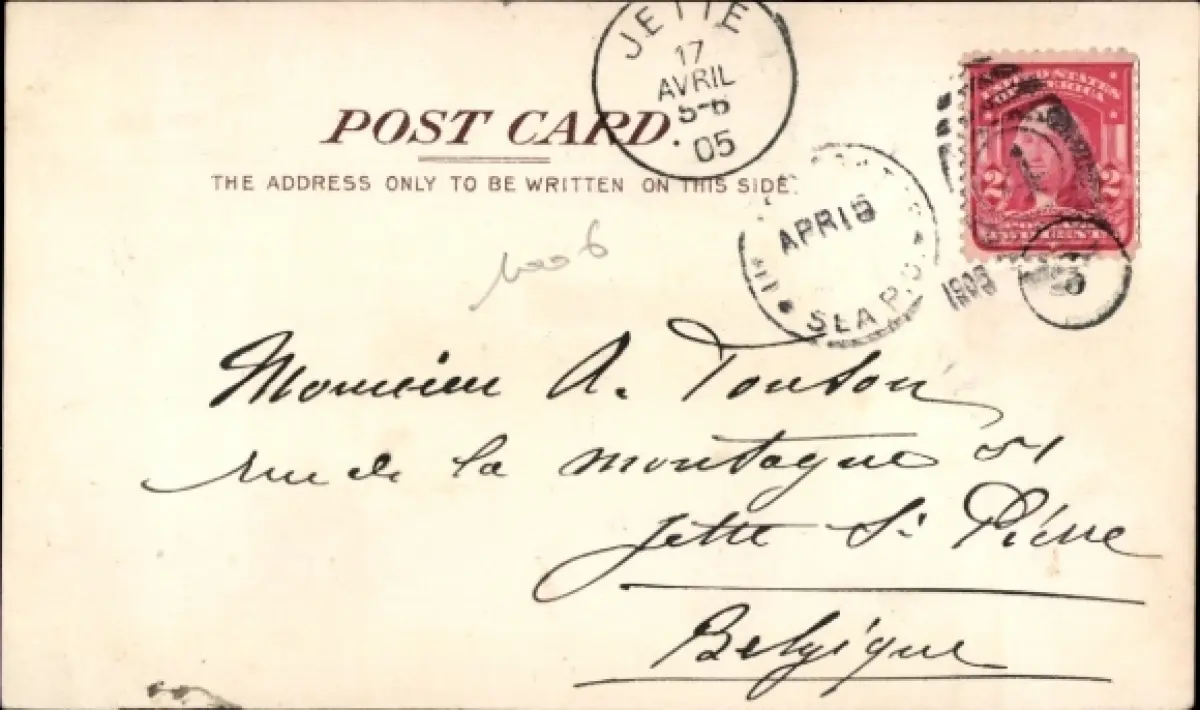 JETTE
17
AVRIL
5-6
05
POST CARD.
THE ADDRESS ONLY TO BE WRITTEN ON THIS SIDE.
UNITED STATES
OF AMERICA
2 2
APR 19
SEA P.O.
Monsieur A. Touson
rue de la montagne 51
Jette St Pierre
Belgique